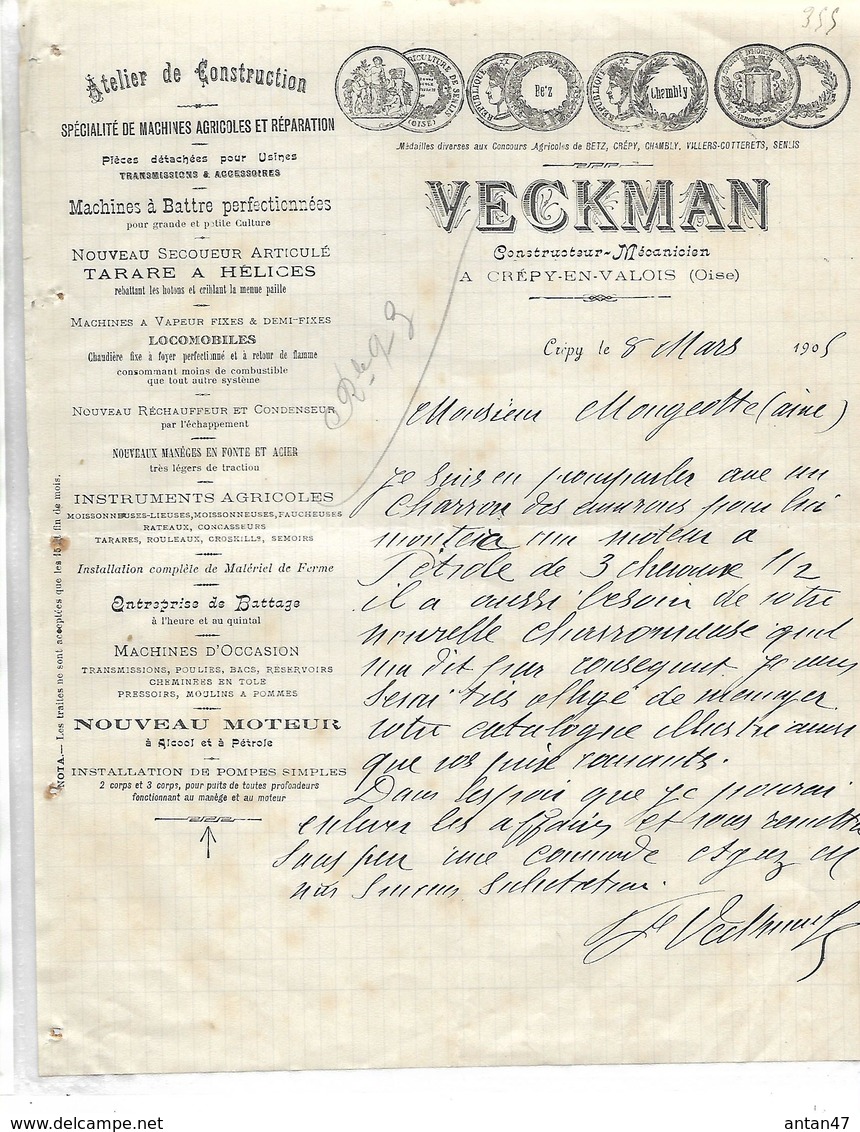 355
Atelier de Construction
SPÉCIALITÉ DE MACHINES AGRICOLES ET RÉPARATION
Pièces détachées pour Usines
TRANSMISSIONS & ACCESSOIRES
Machines à Battre perfectionnées
pour grande et petite Culture
NOUVEAU SECOUEUR ARTICULÉ
TARARE A HÉLICES
rebattant les hotons et criblant la menue paille
MACHINES A VAPEUR FIXES & DEMI-FIXES
LOCOMOBILES
Chaudière fixe à foyer perfectionné et à retour de flamme
consommant moins de combustible
que tout autre système
NOUVEAU RÉCHAUFFEUR ET CONDENSEUR
par l'échappement
NOUVEAUX MANÈGES EN FONTE ET ACIER
très légers de traction
INSTRUMENTS AGRICOLES
MOISSONNEUSES-LIEUSES, MOISSONNEUSES, FAUCHEUSES
RATEAUX, CONCASSEURS
TARARES, ROULEAUX, CROSKILLS, SEMOIRS
Installation complète de Matériel de Ferme
Entreprise de Battage
à l'heure et au quintal
MACHINES D'OCCASION
TRANSMISSIONS, POULIES, BACS, RÉSERVOIRS
CHEMINÉES EN TOLE
PRESSOIRS, MOULINS A POMMES
NOUVEAU MOTEUR
à Alcool et à Pétrole
INSTALLATION DE POMPES SIMPLES
2 corps et 3 corps, pour puits de toutes profondeurs
fonctionnant au manège et au moteur
NOTA. — Les traites ne sont acceptées que les 15 et fin de mois.
AGRICULTURE DE SENLIS
(OISE)
REPUBLIQUE
Betz
REPUBLIQUE
Chambly
Médailles diverses aux Concours Agricoles de BETZ, CRÉPY, CHAMBLY, VILLERS-COTTERETS, SENLIS
VECKMAN
Constructeur-Mécanicien
A CRÉPY-EN-VALOIS (Oise)
Crépy le 8 Mars 1905
Monsieur Mougeotte (ainé)
Je suis en pourparler avec un
Charron des environs pour lui
monter un moteur a
Pétrole de 3 chevaux 1/2
il a aussi besoin de votre
nouvelle charronneuse quil
ma dit par consequent Je vous
Serai très obligé de menvoyer
votre catalogue illustré ainsi
que vos prix courants.
Dans lespoir que je pourai
enlever les affaires et vous remettre
Sous peu une commande
nos Sinceres Salutation.
Veckman
antan47